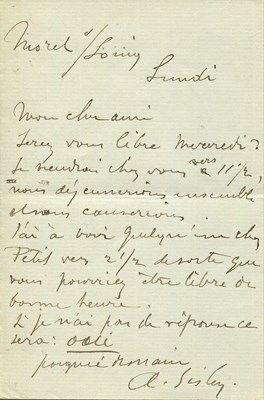 Moret s/Loing
Lundi
Mon cher ami
Serez vous libre Mercredi?
Je viendrai chez vous vers 11 1/2,
nous déjeunerions ensemble
et nous causerions.
J'ai à voir quelqu'un chez
Petit vers 2 1/2 de sorte que
vous pourriez être libre de
bonne heure.
Si je n'ai pas de réponse ce
sera: oui
poignée de main
A. Sisley.